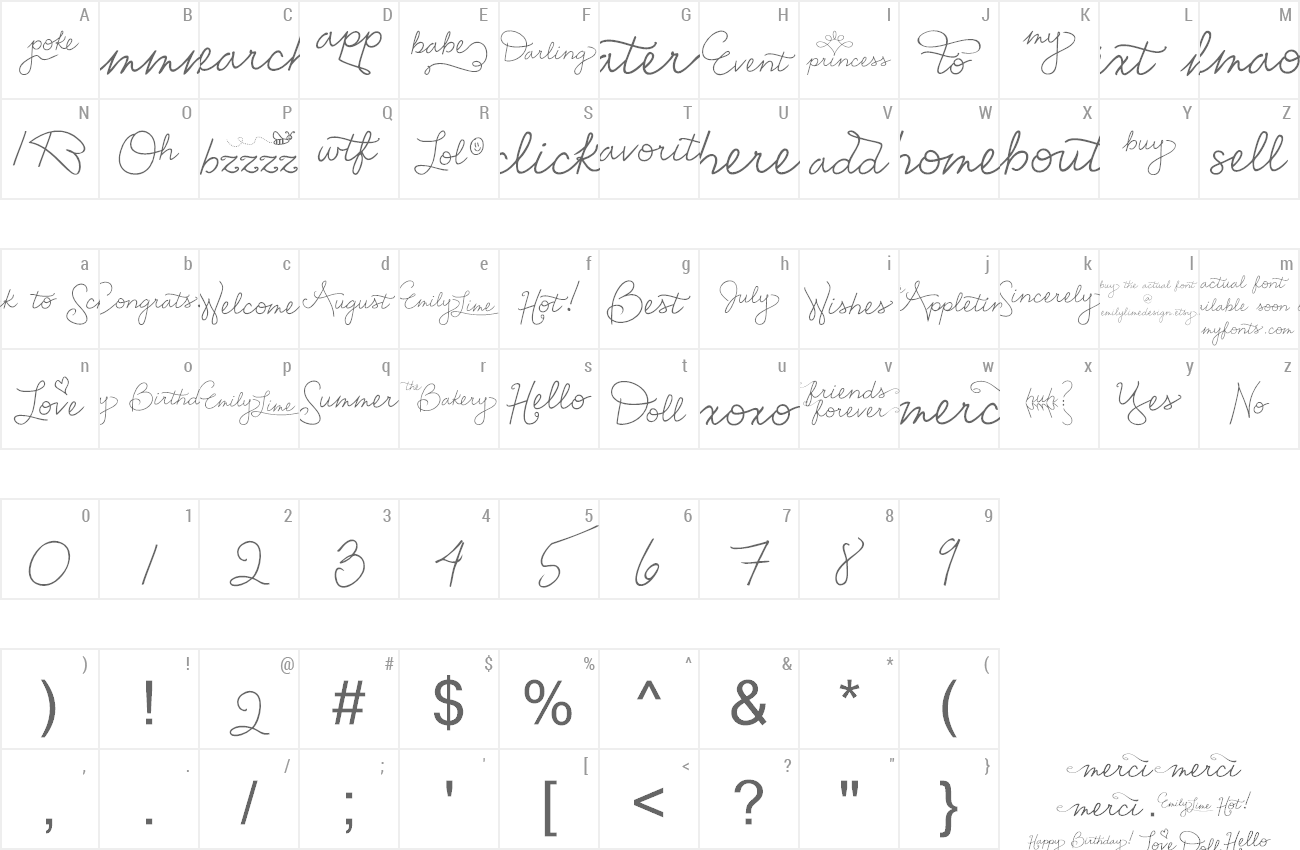 A B C D E F G H I J K L M
poke mmm earch app babe Darling ater Event princess To my xt lmao
N O P Q R S T U V W X Y Z
Oh bzzzz wtf Lol click avorit here add home bout buy sell
a b c d e f g h i j k l m
k to Sc Congrats. Welcome August EmilyLime Hot! Best July Wishes Appletin Sincerely buy the actual font @ emilylimedesign.etsy actual font ailable soon myfonts.com
n o p q r s t u v w x y z
y Birthd EmilyLime Summer the Bakery Hello Love Doll xoxo friends forever merc huh? Yes No
0 1 2 3 4 5 6 7 8 9
0 1 2 3 4 5 6 7 8 9
) ! @ # $ % ^ & * (
) ! 2 # $ % ^ & * (
, . / ; ' [ < ? " }
, . / ; ' [ < ? " }
merci merci
merci . EmilyLime Hot!
Happy Birthday! Love Doll Hello